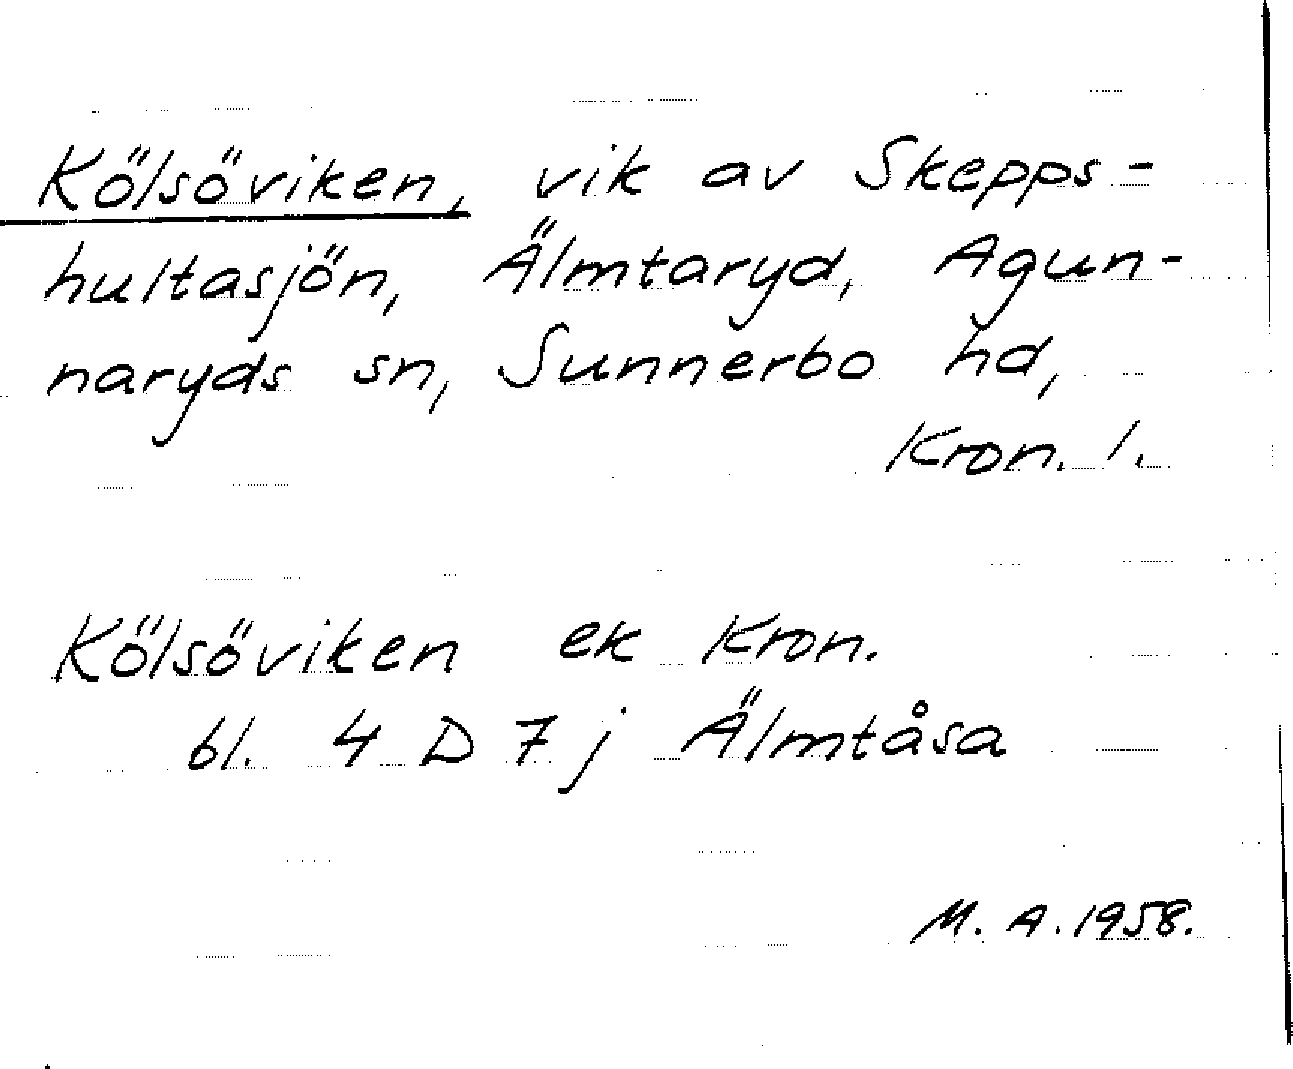 Kölsöviken, vik av Skepps-
hultasjön, Älmtaryd, Agun-
naryds sn, Sunnerbo hd,
Kron. l.
Kölsöviken ek Kron.
bl. 4 D 7 j Älmtåsa
M. A. 1958.